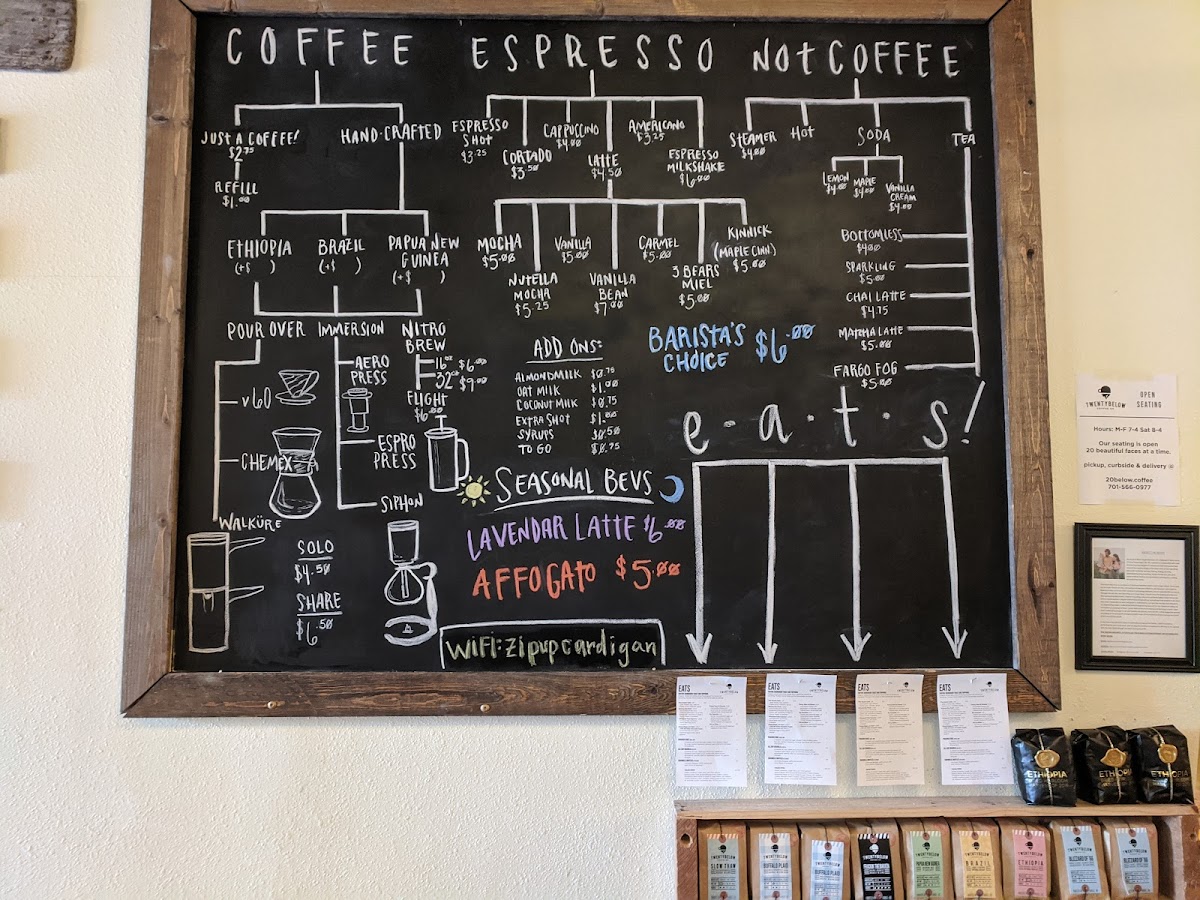 COFFEE
JUST A COFFEE!
$2.75
REFILL
$1.00
HAND-CRAFTED
ETHIOPIA
(+$ )
BRAZIL
(+$ )
PAPUA NEW
GUINEA
(+$ )
POUR OVER
IMMERSION
NITRO
BREW
V60
CHEMEX
WALKÜRE
AERO
PRESS
ESPRO
PRESS
SIPHON
16oz $6.00
32oz $9.00
FLIGHT
$6.00
SOLO
$4.50
SHARE
$6.50
ESPRESSO
ESPRESSO
SHOT
$3.25
CORTADO
$3.50
CAPPUCCINO
$4.00
LATTE
$4.50
AMERICANO
$3.25
ESPRESSO
MILKSHAKE
$6.00
MOCHA
$5.00
NUTELLA
MOCHA
$5.25
VANILLA
$5.00
VANILLA
BEAN
$7.00
CARMEL
$5.00
3 BEARS
MIEL
$5.00
KINNICK
(MAPLE CINN)
$5.00
ADD ONS:
ALMONDMILK $0.75
OAT MILK $1.00
COCONUT MILK $0.75
EXTRA SHOT $1.00
SYRUPS $0.50
TO GO $0.75
BARISTA'S
CHOICE $6.00
SEASONAL BEVS
LAVENDAR LATTE $6.00
AFFOGATO $5.00
WIFI: zipupcardigan
NOt COFFEE
STEAMER
$4.00
HOT
SODA
LEMON
$4.00
MAPLE
$4.00
VANILLA
CREAM
$4.00
TEA
BOTTOMLESS
$4.00
SPARKLING
$5.00
CHAI LATTE
$4.75
MATCHA LATTE
$5.00
FARGO FOG
$5.00
e·a·t·s!
EATS
EATS
EATS
EATS
TWENTYBELOW
OPEN
SEATING
Hours: M-F 7-4 Sat 8-4
Our seating is open
20 beautiful faces at a time.
pickup, curbside & delivery @
20below.coffee
701-566-0977
ETHIOPIA
ETHIOPIA
ETHIOPIA
TWENTYBELOW
SLOW TRAIN
TWENTYBELOW
BUFFALO PLAID
TWENTYBELOW
BUFFALO PLAID
TWENTYBELOW
TWENTYBELOW
PAPUA NEW GUINEA
TWENTYBELOW
BRAZIL
TWENTYBELOW
ETHIOPIA
TWENTYBELOW
TWENTYBELOW